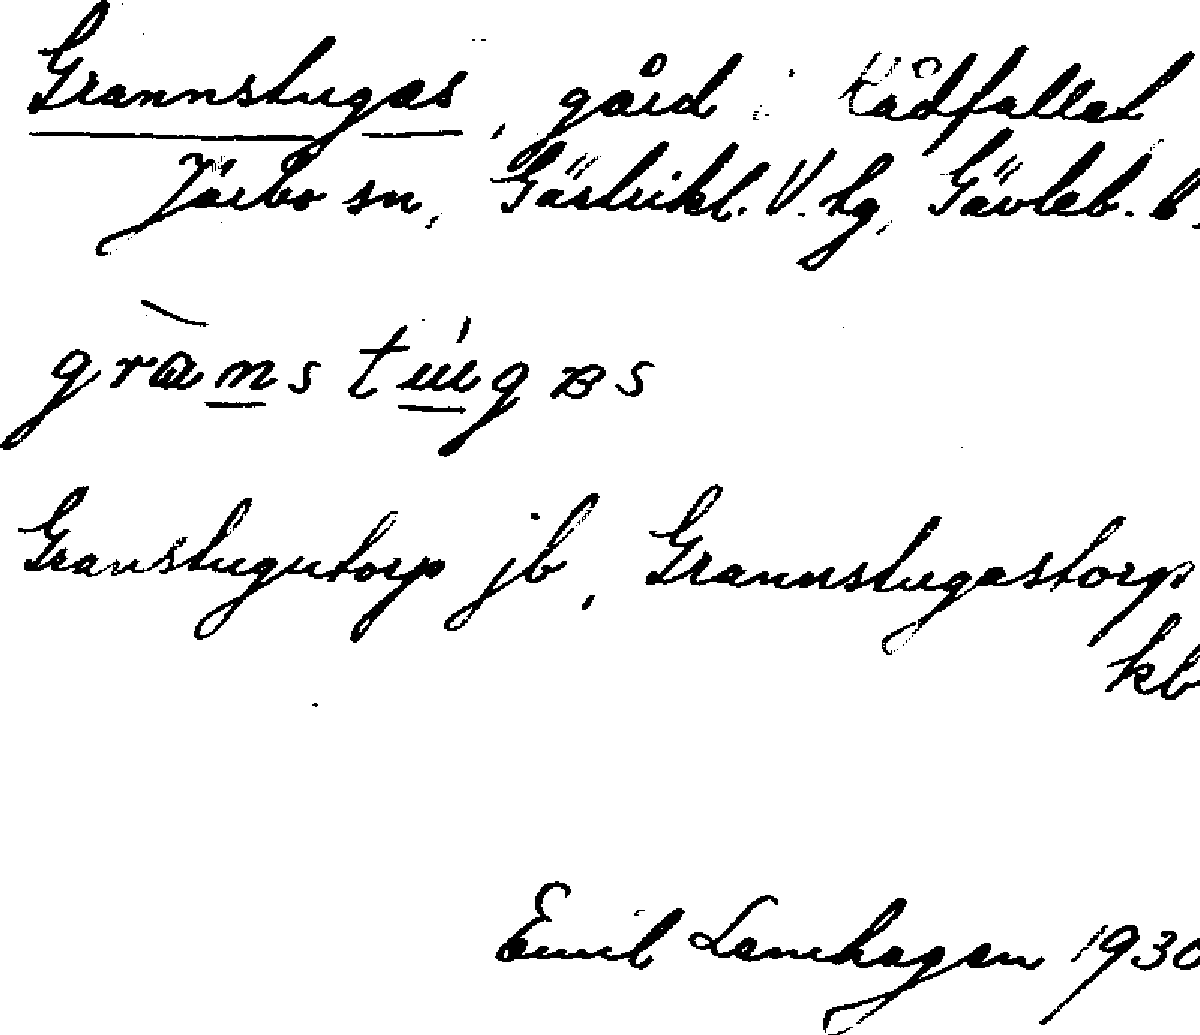 Grannstugas, gård i Kådfallet
Järbo sn, Gästrikl. V. hg, Gävleb. l.
grànstúgas
Granstugutorp jb, Grannstugastorp
kb
Emil Lamhagen 1930